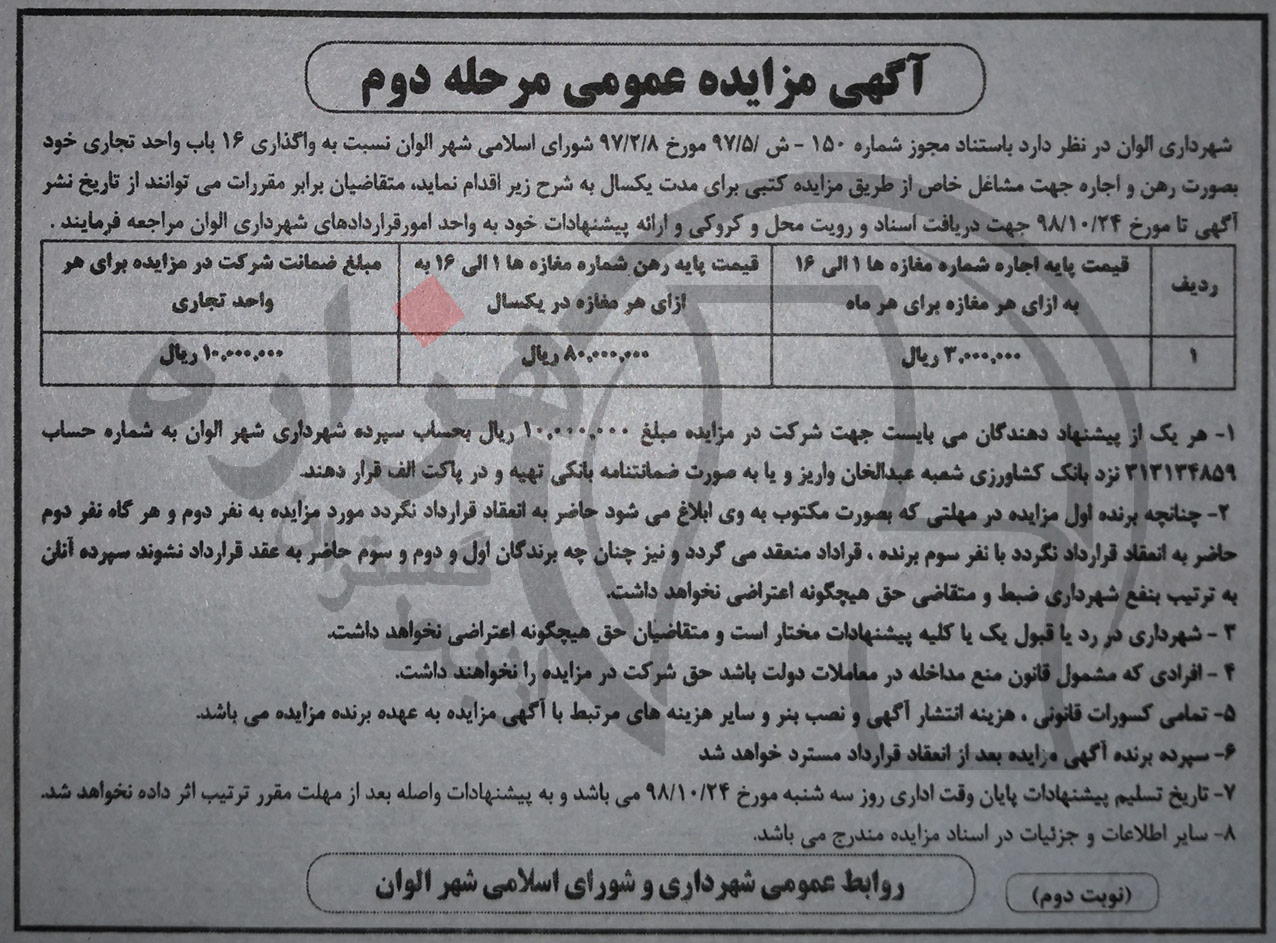 آگهی مزایده عمومی مرحله دوم
شهرداری الوان در نظر دارد باستناد مجوز شماره ۱۵۰ - ش /۹۷/۵ مورخ ۹۷/۲/۸ شورای اسلامی شهر الوان نسبت به واگذاری ۱۶ باب واحد تجاری خود
بصورت رهن و اجاره جهت مشاغل خاص از طریق مزایده کتبی برای مدت یکسال به شرح زیر اقدام نماید، متقاضیان برابر مقررات می توانند از تاریخ نشر
آگهی تا مورخ ۹۸/۱۰/۲۴ جهت دریافت اسناد و رویت محل و کروکی و ارائه پیشنهادات خود به واحد امورقراردادهای شهرداری الوان مراجعه فرمایند .
ردیف
قیمت پایه اجاره شماره مغازه ها ۱ الی ۱۶
به ازای هر مغازه برای هر ماه
قیمت پایه رهن شماره مغازه ها ۱ الی ۱۶ به
ازای هر مغازه در یکسال
مبلغ ضمانت شرکت در مزایده برای هر
واحد تجاری
۱
۳,۰۰۰,۰۰۰ ریال
۸۰,۰۰۰,۰۰۰ ریال
۱۰,۰۰۰,۰۰۰ ریال
۱- هر یک از پیشنهاد دهندگان می بایست جهت شرکت در مزایده مبلغ ۱۰,۰۰۰,۰۰۰ ریال بحساب سپرده شهرداری شهر الوان به شماره حساب
۳۱۲۱۳۴۸۵۹ نزد بانک کشاورزی شعبه عبدالخان واریز و یا به صورت ضمانتنامه بانکی تهیه و در پاکت الف قرار دهند.
۲- چنانچه برنده اول مزایده در مهلتی که بصورت مکتوب به وی ابلاغ می شود حاضر به انعقاد قرارداد نگردد مورد مزایده به نفر دوم و هر گاه نفر دوم
حاضر به انعقاد قرارداد نگردد با نفر سوم برنده ، قراداد منعقد می گردد و نیز چنان چه برندگان اول و دوم و سوم حاضر به عقد قرارداد نشوند سپرده آنان
به ترتیب بنفع شهرداری ضبط و متقاضی حق هیچگونه اعتراضی نخواهد داشت.
۳ - شهرداری در رد یا قبول یک یا کلیه پیشنهادات مختار است و متقاضیان حق هیچگونه اعتراضی نخواهد داشت.
۴ - افرادی که مشمول قانون منع مداخله در معاملات دولت باشد حق شرکت در مزایده را نخواهند داشت.
۵- تمامی کسورات قانونی ، هزینه انتشار آگهی و نصب بنر و سایر هزینه های مرتبط با آگهی مزایده به عهده برنده مزایده می باشد.
۶- سپرده برنده آگهی مزایده بعد از انعقاد قرارداد مسترد خواهد شد
۷- تاریخ تسلیم پیشنهادات پایان وقت اداری روز سه شنبه مورخ ۹۸/۱۰/۲۴ می باشد و به پیشنهادات واصله بعد از مهلت مقرر ترتیب اثر داده نخواهد شد.
۸- سایر اطلاعات و جزئیات در اسناد مزایده مندرج می باشد.
روابط عمومی شهرداری و شورای اسلامی شهر الوان
(نوبت دوم)
هزاره